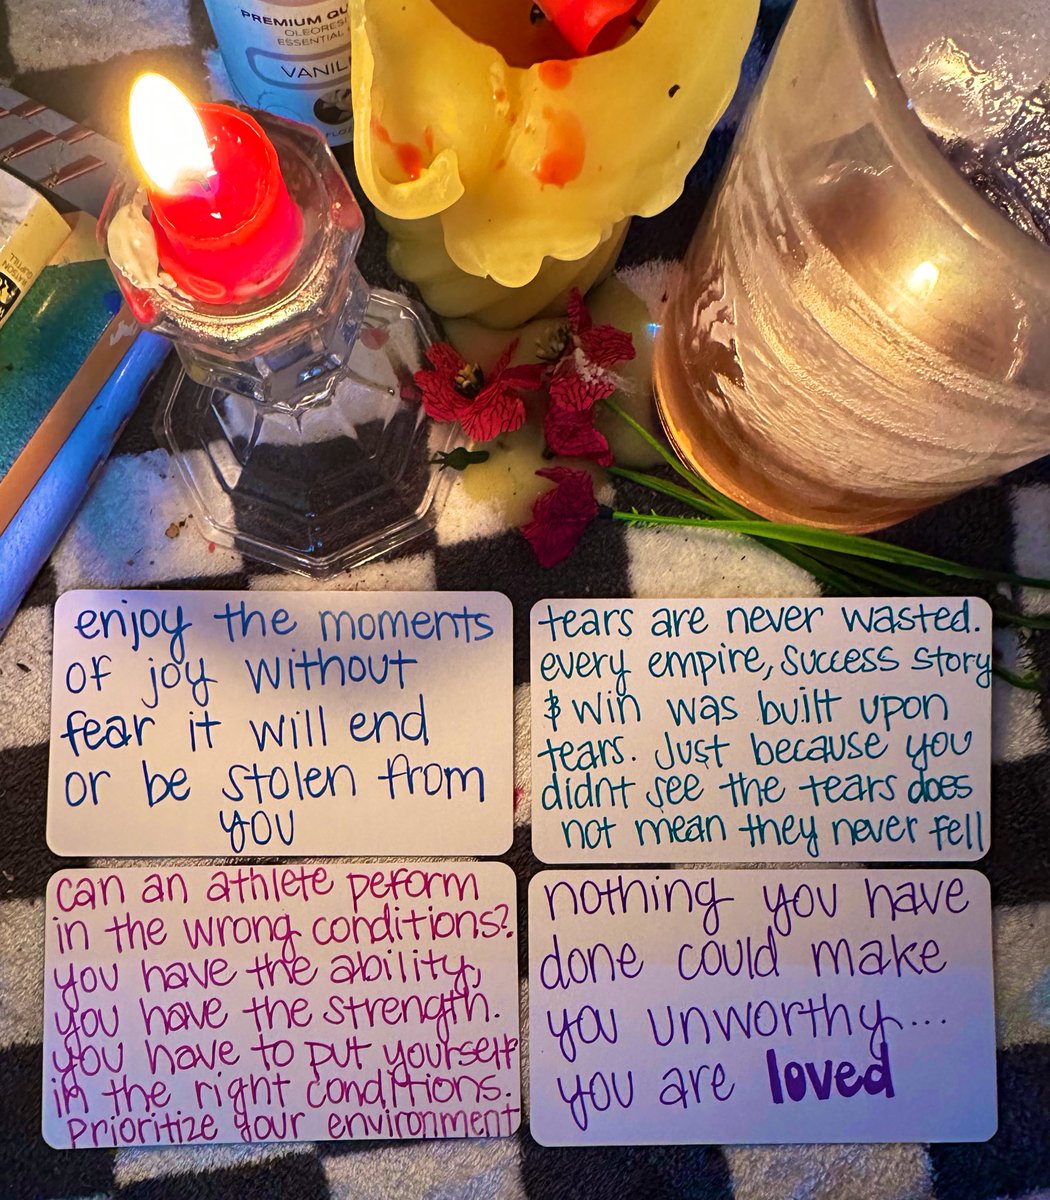 PREMIUM QU
OLEORES
ESSENTIAL
VANIL
enjoy the moments
of joy without
fear it will end
or be stolen from
you
tears are never wasted.
every empire, success story
& win was built upon
tears. Just because you
didnt see the tears does
not mean they never fell
can an athlete peform
in the wrong conditions?
you have the ability,
you have the strength.
you have to put yourself
in the right conditions.
Prioritize your environment
nothing you have
done could make
you unworthy...
you are loved